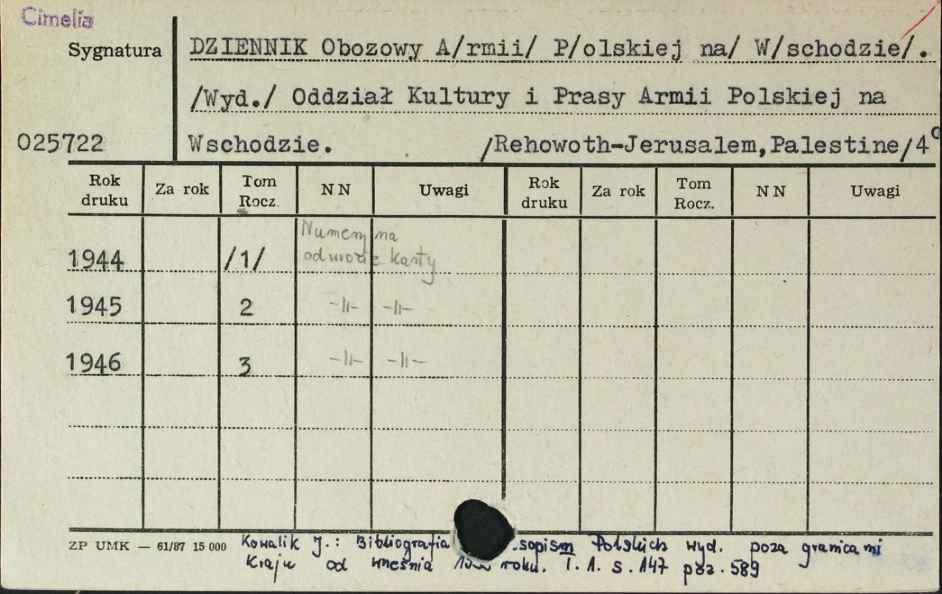 Cimelia
Sygnatura
DZIENNIK Obozowy A/rmii/ P/olskiej na/ W/schodzie/.
/Wyd./ Oddział Kultury i Prasy Armii Polskiej na
025722 Wschodzie. /Rehowoth-Jerusalem,Palestine/4°
Rok druku Za rok Tom Rocz. NN Uwagi Rok druku Za rok Tom Rocz. NN Uwagi
Numery na
1944 /1/ odwrocie karty
1945 2 -||- -||-
1946 3 -||- -||-
ZP UMK — 61/87 15 000 Kowalik J.: Bibliografia sopism Polskich wyd. poza granicami
Kraju od wneśnia roku. T. 1. s. 147 poz. 589